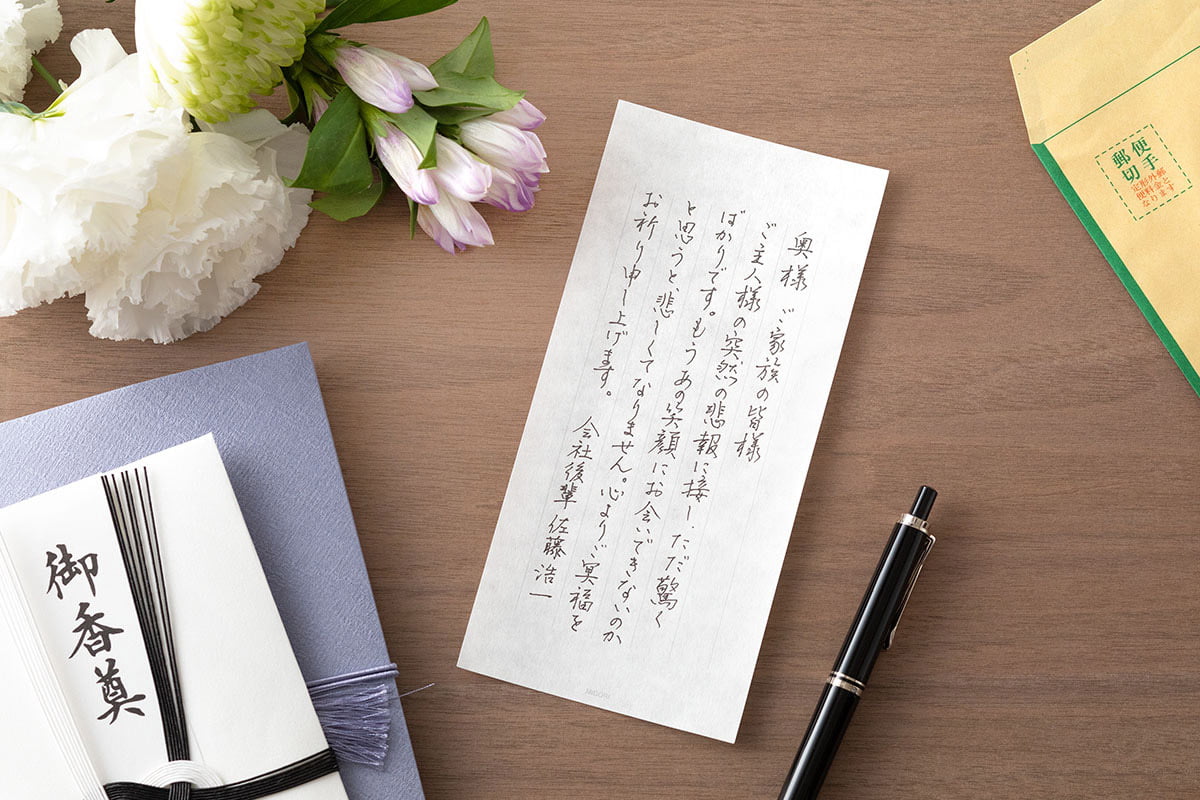 奥様 ご家族の皆様
ご主人様の突然の悲報に接し、ただ驚く
ばかりです。もうあの笑顔にお会いできないのか
と思うと、悲しくてなりません。心よりご冥福を
お祈り申し上げます。
会社後輩 佐藤浩一
MIDORI
御香奠
郵便
切手
定形外郵
便料金と
なります